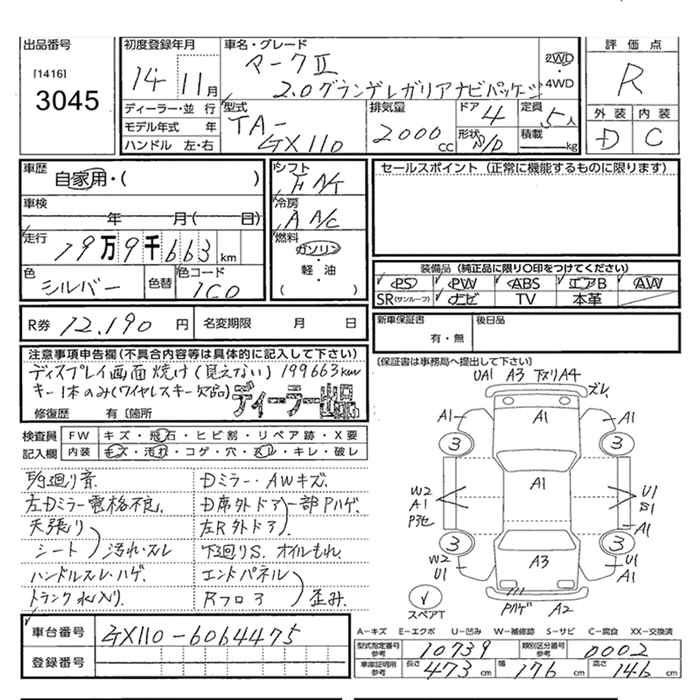 出品番号
[1416]
3045
初度登録年月
14 11月
ディーラー・並行
モデル年式 年
ハンドル 左・右
車名・グレード
マークⅡ
2.0グランデレガリアナビパッケージ
2WD
・
4WD
型式
TA-
GX110
排気量
2000 cc
ドア 4
形状 S/D
定員 5人
積載 kg
評価点
R
外装 内装
D C
車歴
自家用・( )
車検
年 月( 日)
走行
19万9千663 km
色
シルバー
色替
色コード
1C0
シフト
F A/T
冷房
A A/C
燃料
ガソリン
・
軽・油
( )
セールスポイント (正常に機能するものに限ります)
装備品 (純正品に限り○印をつけてください)
PS PW ABS エアB AW
SR(サンルーフ) ナビ TV 本革
R券 12,190円 名変期限 月 日
新車保証書
有・無
後日品
(保証書は事務局へ提出して下さい)
注意事項申告欄(不具合内容等は具体的に記入して下さい)
ディスプレイ画面焼け(見えない) 199663km
キー1本のみ(ワイヤレスキー欠品)
ディーラー出品
修復歴 有〔箇所
検査員 FW キズ・飛石・ヒビ割・リペア跡・X要
記入欄 内装 キズ・汚れ・コゲ・穴・スレ・キレ・破レ
左Dミラー電格不良.
天張り
シート 汚れ・スレ
ハンドルスレ・ハゲ.
トランク水入り.
Dミラー・AWキズ.
D席外ドア一部Pハゲ.
左R外ドア
下廻りS. オイルもれ.
エンドパネル
Rフロア 歪み.
UA1 A3 下ヌリA4
ズレ.
A1 A1 A1
3 3
W2
A1
P3色
A1
U1
S1
A1
3 3
W2
U1
A3
U1
A1
スペアT
Pハゲ A2
A-キズ E-エクボ U-凹み W-補修跡 S-サビ C-腐食 XX-交換済
車台番号 GX110-6064475
登録番号
型式指定番号
参考
10739
類別区分番号
参考
0002
車庫証明用
参考
長さ 473 cm 幅 176 cm 高さ 146 cm